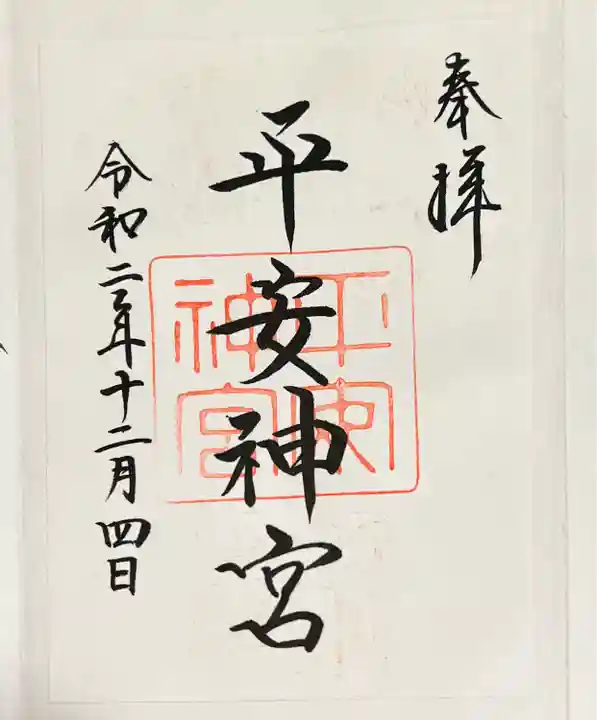 奉拝
平安神宮
平安
神宮
令和二年十二月四日